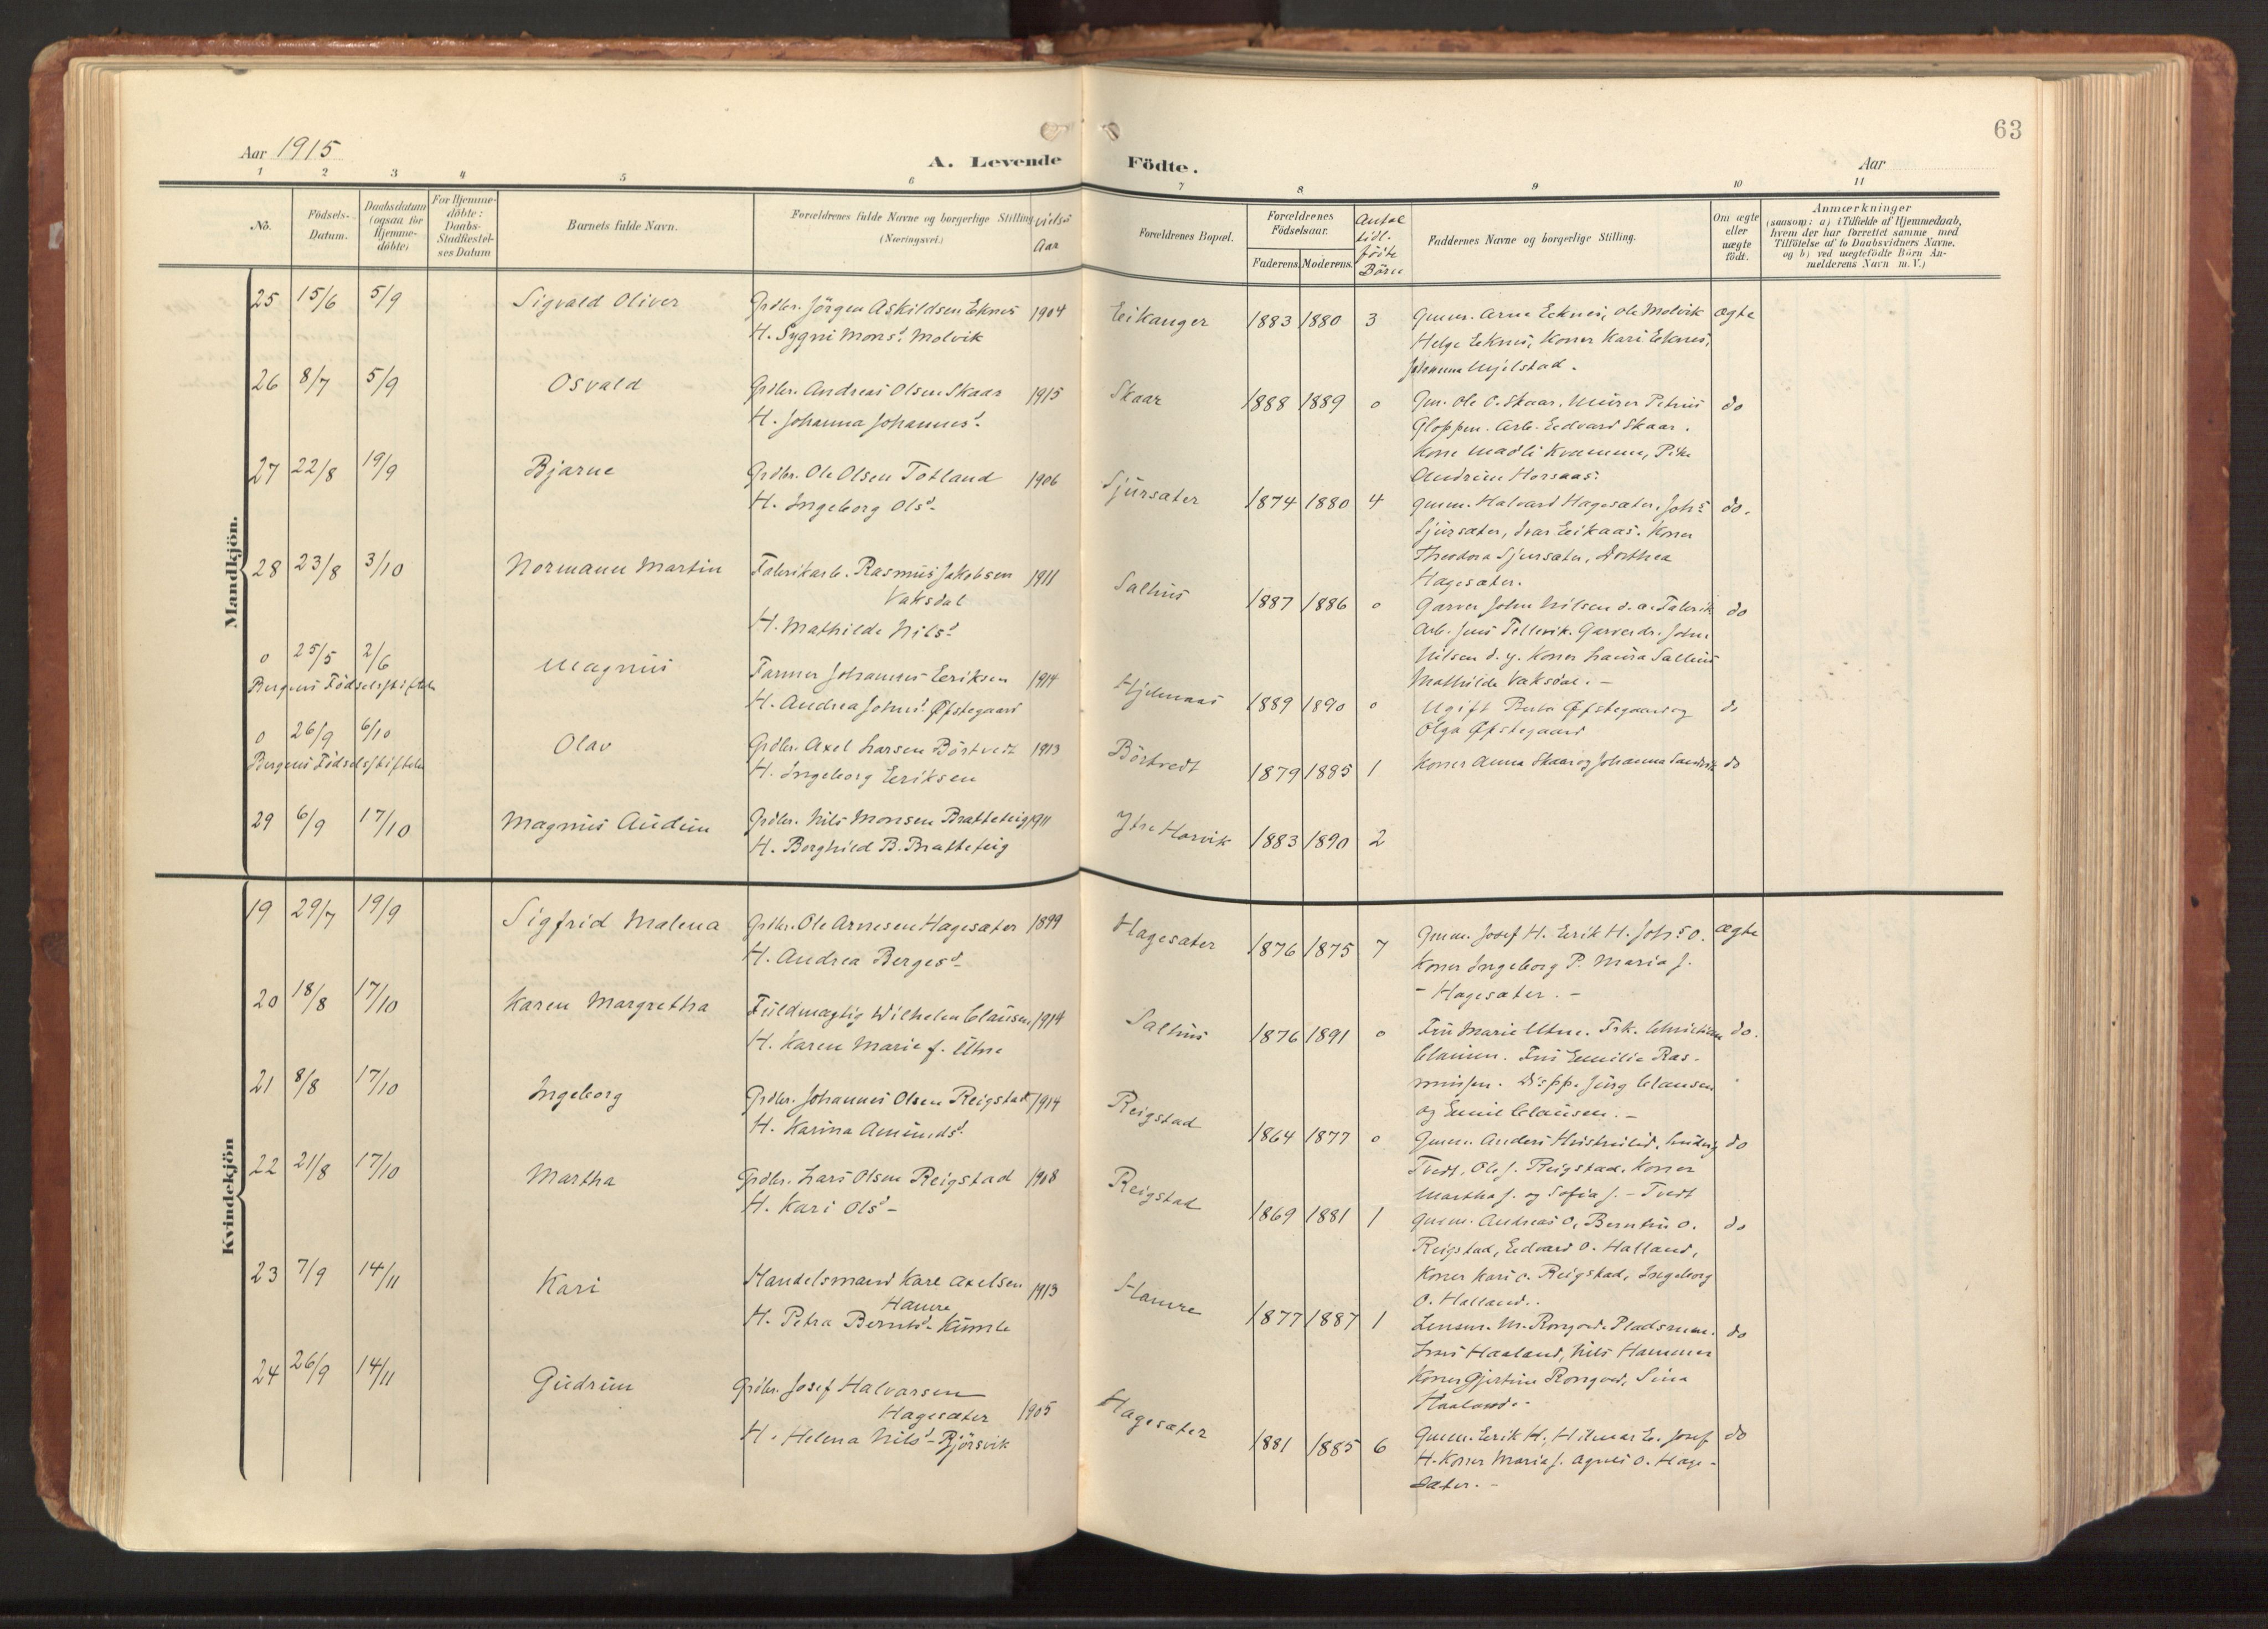 63
Aar 1915
A. Levende Födte.
Aar
1 2 3 4 5 6 7 8 9 10 11
No.
Födsels-
Datum.
Daabsdatum
(ogsaa for
Hjemme-
döbte)
For Hjemme-
döbte:
Daabs-
Stadfæstel-
ses Datum
Barnets fulde Navn.
Forældrenes fulde Navne og borgerlige Stilling
(Næringsvei.)
vielses
Aar
Forældrenes Bopæl.
Forældrenes
Födselsaar.
Faderens. Moderens.
Antal
tidl.
födte
Börn
Faddernes Navne og borgerlige Stilling.
Om ægte
eller
uægte
födt.
Anmærkninger
(saasom: a) i Tilfælde af Hjemmedaab,
hvem der har forrettet samme med
Tilföielse af to Daabsvidners Navne.
og b) ved uægtefödte Börn An-
melderens Navn m. V.)
Mandkjön.
25 15/6 5/9 Sigvald Oliver Grdbr. Jörgen Askildsen Eknes 1904 Eikanger 1883 1880 3 Gmm. Arne Eeknes, Ole Molvik ægte
H. Sygni Mons.d Molvik Helge Eeknes, Koner Kari Eeknes,
Johanna Mjelstad.
26 8/7 5/9 Osvald Grdbr. Andreas Olsen Skaar 1915 Skaar 1888 1889 0 Gm. Ole O. Skaar. Murer Petrus do
H. Johanna Johannes.d Gloppen. Arb. Eedvard Skaar.
Kone Madli Kvamme, Pike
Andrine Horsaas.
27 22/8 19/9 Bjarne Grdbr. Ole Olsen Totland 1906 Sjursæter 1874 1880 4 Gmm. Halvard Hagesæter, Johs do.
H. Ingeborg Ols.d Sjursæter, Ivar Eeikaas. Koner
Theodora Sjursæter, Dorthea
Hagesæter.
28 23/8 3/10 Normann Martin Fabrikarb. Rasmus Jakobsen 1911 Salhus 1887 1886 0 Garver John Nilsen d.a. Fabrik do
Vaksdal Arb. Jens Tellevik. Garverdr. John
H. Mathilde Nils.d Nilsen d.y. Koner Laura Salhus
Mathilde Vaksdal. -
0 25/5 2/6 Magnus Farmer Johannes Eeriksen 1914 Hjelmaas 1889 1890 0 Ugift Berta Øfstegaard og do
Bergens Födselsstiftelse H. Andrea Johns.d Øfstegaard Olga Øfstegaard
0 26/9 6/10 Olav Grdbr. Axel Larsen Börtvedt 1913 Börtvedt 1879 1885 1 Koner Anna Skaar og Johanna Sandvik do
Bergens Födselsstiftelse H. Ingeborg Eeriksen
29 6/9 17/10 Magnus Audun Grdbr. Nils Monsen Bratteteig 1911 Ytre Horvik 1883 1890 2
H. Borghild B. Bratteteig
Kvindekjön
19 29/7 19/9 Sigfrid Malena Grdbr. Ole Arnesen Hagesæter 1899 Hagesæter 1876 1875 7 Gmm. Josef H. Eerik H. Johs O. ægte
H. Andrea Berges.d Koner Ingeborg P. Maria J.
- Hagesæter. -
20 18/8 17/10 Karen Margretha Fuldmægtig Wilhelm Clausen 1914 Salhus 1876 1891 0 Fru Marie Utne. Frk. Christiane do.
H. Karen Marie f. Utne Clausen. Fru Emilie Ras-
mussen. Dispp. Jürg Clausen
og Emil Clausen. -
21 8/8 17/10 Ingeborg Grdbr. Johannes Olsen Reigstad 1914 Reigstad 1864 1877 0 Gmm. Anders Ludvig do
H. Karina Amunds.d Tvedt, Ole J. Reigstad, Koner
Martha J. og Sofia J. - Tvedt
22 21/8 17/10 Martha Grdbr. Lars Olsen Reigstad 1908 Reigstad 1869 1881 1 Gmm. Andreas O, Berntin O. do
H. Kari Ols.d - Reigstad, Eedvard O. Halland,
Koner Kari O. Reigstad, Ingeborg
O. Halland.
23 7/9 14/11 Kari Handelsmand Karl Axelsen 1913 Hamre 1877 1887 1 Lensm. M. Rongved. Pladsmm. do
Hamre Lars Haaland, Nils Hammer
H. Petra Bernts.d Kumle Koner Gjertine Rongved, Sina
Haaland.
24 26/9 14/11 Gudrun Grdbr. Josef Halvarsen 1905 Hagesæter 1881 1885 6 Gmm. Eerik H, Hilmar E. Josef do
Hagesæter H. Koner Maria J. Agnes O. Hage-
H. Helena Nils.d - Bjørsvik sæter. -